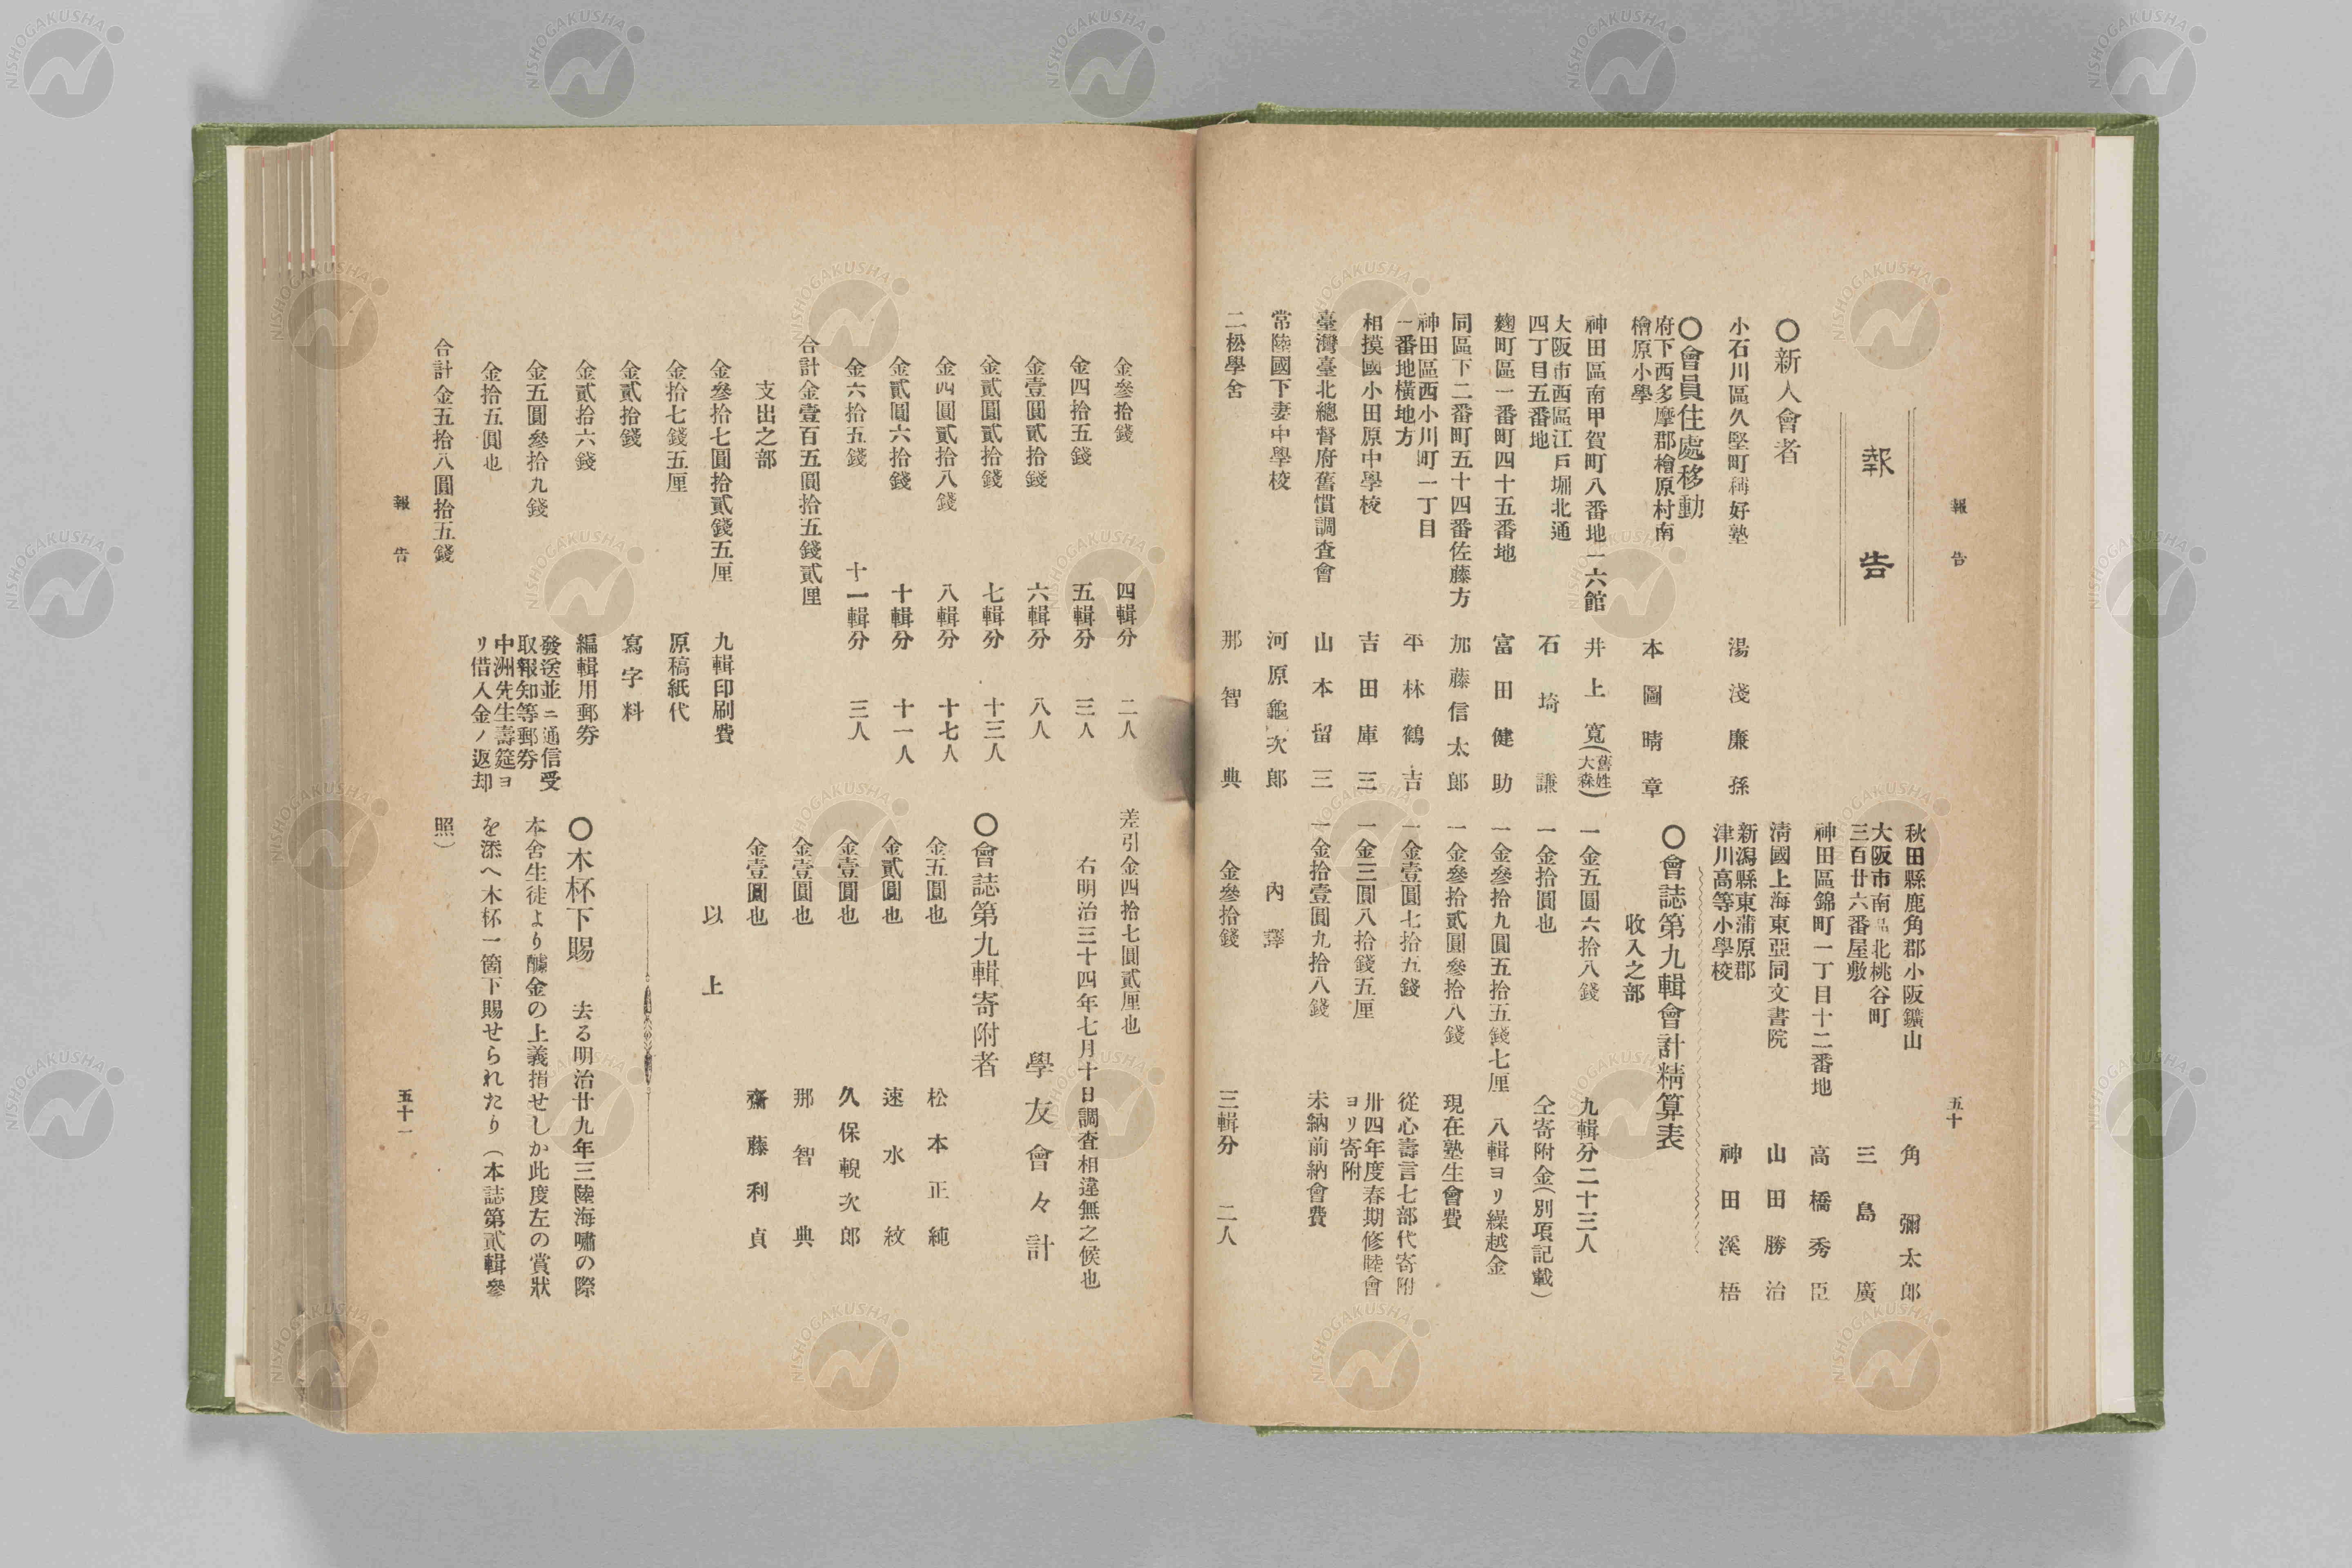 報告
五十
報告
○新入會者
小石川區久堅町稱好塾 湯淺廉孫
○會員住處移動
府下西多摩郡檜原村南
檜原小學 本圖晴章
神田區南甲賀町八番地一六館 井上寬(舊姓大森)
大阪市西區江戶堀北通
四丁目五番地 石埼謙
麴町區一番町四十五番地 富田健助
同區下二番町五十四番佐藤方 加藤信太郎
神田區西小川町一丁目
一番地橫地方 平林鶴吉
相摸國小田原中學校 吉田庫三
臺灣臺北總督府舊慣調査會 山本留三
常陸國下妻中學校 河原龜次郎
二松學舍 那智典
秋田縣鹿角郡小阪鑛山 角彌太郎
大阪市南區北桃谷町
三百廿六番屋敷 三島廣
神田區錦町一丁目十二番地 高橋秀臣
淸國上海東亞同文書院 山田勝治
新潟縣東蒲原郡
津川高等小學校 神田溪梧
○會誌第九輯會計精算表
收入之部
一金五圓六拾八錢 九輯分二十三人
一金拾圓也 仝寄附金(別項記載)
一金參拾九圓五拾五錢七厘 八輯ヨリ繰越金
一金參拾貳圓參拾八錢 現在塾生會費
一金壹圓七拾五錢 從心壽言七部代寄附
一金三圓八拾錢五厘 卅四年度春期修睦會
ヨリ寄附
一金拾壹圓九拾八錢 未納前納會費
內譯
金參拾錢 三輯分 二人
金參拾錢 四輯分 二人
金四拾五錢 五輯分 三人
金壹圓貳拾錢 六輯分 八人
金貳圓貳拾錢 七輯分 十三人
金四圓貳拾八錢 八輯分 十七人
金貳圓六拾錢 十輯分 十一人
金六拾五錢 十一輯分 三人
合計金壹百五圓拾五錢貳厘
支出之部
金參拾七圓拾貳錢五厘 九輯印刷費
金拾七錢五厘 原稿紙代
金貳拾錢 寫字料
金貳拾六錢 編輯用郵券
金五圓參拾九錢 發送並ニ通信受
取報知等郵券
金拾五圓也 中洲先生壽筵ヨ
リ借入金ノ返却
合計金五拾八圓拾五錢
差引金四拾七圓貳厘也
右明治三十四年七月十日調査相違無之候也
學友會々計
○會誌第九輯寄附者
金五圓也 松本正純
金貳圓也 速水紋
金壹圓也 久保輗次郎
金壹圓也 那智典
金壹圓也 齋藤利貞
以上
○木杯下賜 去る明治廿九年三陸海嘯の際
本舍生徒より醵金の上義捐せしか此度左の賞狀
を添へ木杯一箇下賜せられたり(本誌第貳輯參
照)
報告
五十一